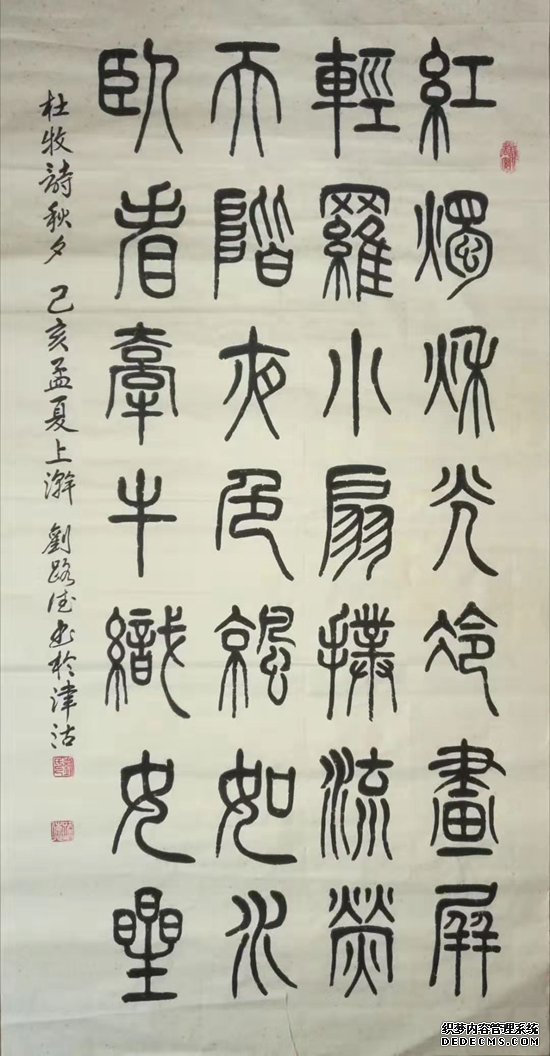 紅燭秋光冷畫屏
輕羅小扇撲流螢
天階夜色涼如水
臥看牽牛織女星
杜牧詩秋夕 己亥孟夏上澣 劉路書於津沽
织梦内容管理系统
DEDECMS.COM